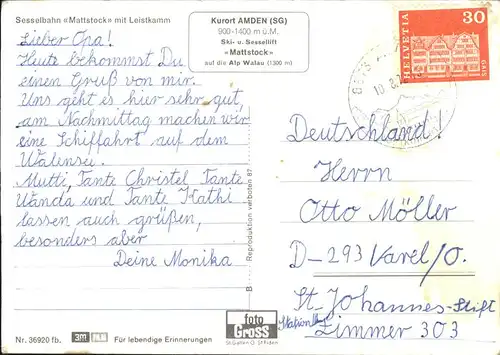 Sesselbahn «Mattstock» mit Leistkamm
Kurort AMDEN (SG)
900-1400 m ü.M.
Ski- u. Sessellift
«Mattstock»
auf die Alp Walau (1300 m)
Lieber Opa!
Heute bekommst Du
einen Gruß von mir.
Uns geht es hier sehr gut,
am Nachmittag machen wir
eine Schiffahrt auf dem
Walensee.
Mutti, Tante Christel Tante
Wanda und Tante Kathi
lassen auch grüßen,
besonders aber
Deine Monika
Reproduktion verboten 87
B
foto
GROSS
St.Gallen O. St.Fiden
Nr. 36920 fb.
3m
Für lebendige Erinnerungen
HELVETIA
30
GAIS
10. 8.
Deutschland!
Herrn
Otto Möller
D-293 Varel/O.
St. Johannes-Stift
Zimmer 303